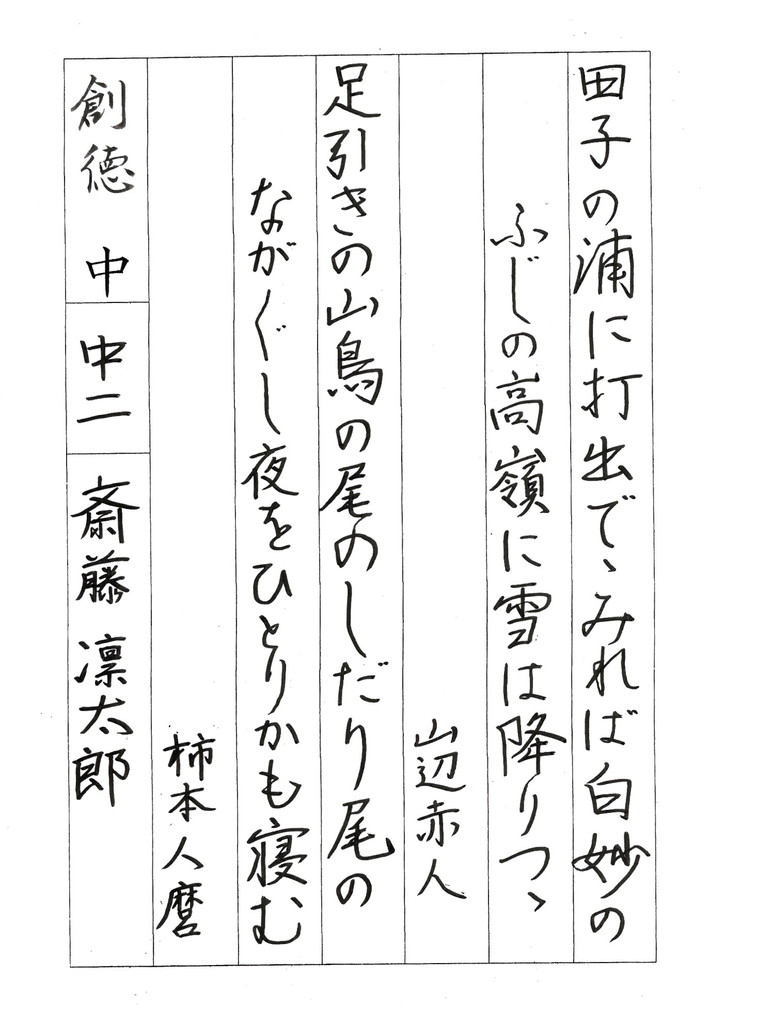 田子の浦に打出でゝみれば白妙の
ふじの高嶺に雪は降りつゝ
山辺赤人
足引きの山鳥の尾のしだり尾の
ながぐし夜をひとりかも寝む
柿本人麿
創徳中 中二 斎藤凛太郎